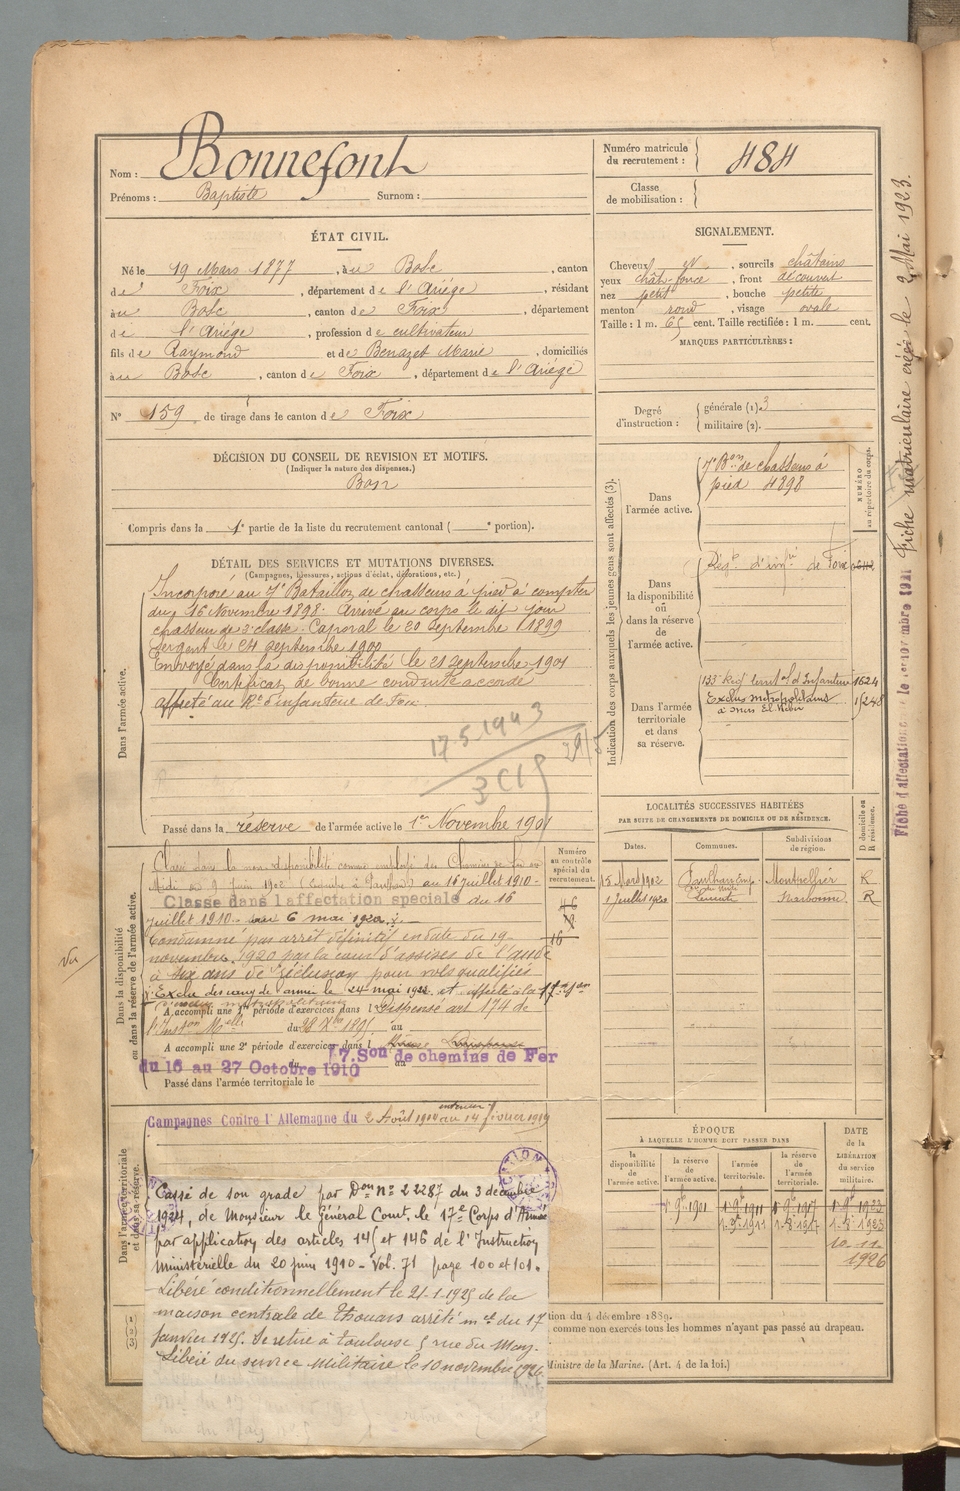 Nom : Bonnefont
Prénoms : Baptiste Surnom :
Numéro matricule du recrutement : 484
Classe de mobilisation :
ÉTAT CIVIL.
Né le 19 Mars 1877, à u Bosc, canton
d e Foix, département d e l'Ariége, résidant
à u Bosc, canton d e Foix, département
d e l'Ariége, profession d e cultivateur
fils d e Raymond et d e Benazet Marie, domiciliés
à u Bosc, canton d e Foix, département d e l'Ariége
N° 159 de tirage dans le canton d e Foix
SIGNALEMENT.
Cheveux et, sourcils châtains
yeux chât. foncé, front découvert
nez petit, bouche petite
menton rond, visage ovale
Taille : 1 m. 65 cent. Taille rectifiée : 1 m. cent.
MARQUES PARTICULIÈRES :
Degré d'instruction : générale (1). 3
militaire (2).
DÉCISION DU CONSEIL DE REVISION ET MOTIFS.
(Indiquer la nature des dispenses.)
Bon
Compris dans la 1e partie de la liste du recrutement cantonal ( e portion).
DÉTAIL DES SERVICES ET MUTATIONS DIVERSES.
(Campagnes, blessures, actions d'éclat, décorations, etc.)
Dans l'armée active.
Incorporé au 7e Bataillon de chasseurs à pied à compter
du 16 Novembre 1898. Arrivé au corps le dit jour
chasseur de 2e classe. Caporal le 20 Septembre 1899
Sergent le 24 septembre 1900
Envoyé dans la disponibilité le 21 Septembre 1901
Certificat de bonne conduite accordé
affecté au Rt d'infanterie de Foix
17.5.1943
Passé dans la réserve de l'armée active le 1er Novembre 1901
Indication des corps auxquels les jeunes gens sont affectés (3).
NUMÉRO au répertoire du corps.
Dans l'armée active.
7e Bon de chasseurs à
pied 4898
Dans la disponibilité ou dans la réserve de l'armée active.
Régt d'infrie de Foix
Dans l'armée territoriale et dans sa réserve.
135e Regt territal d'Infanterie 1624
Exclus métropolitains 1/248
Fiche matriculaire créée le 2 Mai 1923.
Dans la disponibilité ou dans la réserve de l'armée active.
Vu
Classé dans la non-disponibilité comme employé des Chemins de fer du
Midi du 9 Juin 1902 au 16 juillet 1910.
Classé dans l'affectation spéciale du 16
Juillet 1910 au 6 mai 1920.
Condamné par arrêt définitif en date du 19
novembre 1920 par la cour d'assises de l'aude
à six ans de réclusion pour vols qualifiés
Exclu des rangs de l'armée le 24 mai 1921 et affecté à la 17e
A accompli une 1re période d'exercices dans l Dispensé art 174 de
l'Inston Melle du 28 Xbre 1895 au
A accompli une 2e période d'exercices dans l
7. Son de chemins de Fer
du 16 au 27 Octobre 1910
Passé dans l'armée territoriale le
Numéro au contrôle spécial du recrutement.
LOCALITÉS SUCCESSIVES HABITÉES
PAR SUITE DE CHANGEMENTS DE DOMICILE OU DE RÉSIDENCE.
Dates. Communes. Subdivisions de région. D domicile ou R résidence.
15 Mars 1902 Montpellier R
1 Juillet 1920 Narbonne R
Dans l'armée territoriale et dans sa réserve.
Campagnes Contre l'Allemagne du 2 Août 1914 au 14 février 1919
Cassé de son grade par Don N° 22287 du 3 décembre
1924, de Monsieur le Général Comt. le 17e Corps d'Armée
par application des articles 145 et 146 de l'Instruction
Ministérielle du 20 juin 1910 - Vol. 71 page 100 et 101.
Libéré conditionnellement le 21-1-1925 de la
maison centrale de Thouars arrêté mel du 17
janvier 1925. Se retire à toulouse 5 rue du May.
Libéré du service Militaire le 10 novembre 1926
ÉPOQUE
À LAQUELLE L'HOMME DOIT PASSER DANS
la disponibilité de l'armée active. la réserve de l'armée active. l'armée territoriale. la réserve de l'armée territoriale.
DATE de la LIBÉRATION du service militaire.
1. 9bre 1901 1. 9bre 1911 1. 9bre 1917 1. 9bre 1923
10-11-1926
tion du 4 décembre 1889.
comme non exercés tous les hommes n'ayant pas passé au drapeau.
Ministre de la Marine. (Art. 4 de la loi.)